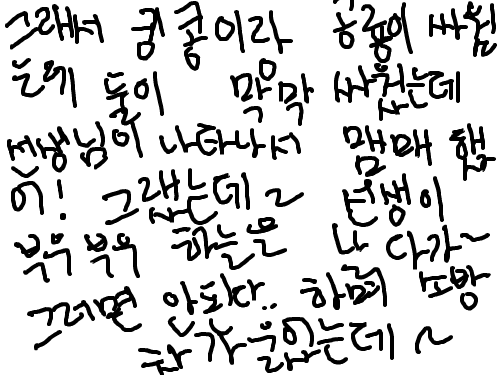 그래서 킹콩이랑 공룡이 싸웠
는데 둘이 막 막 싸웠는데
선생님이 나타나서 맴매 했
어! 그랬는데~ 선생이
부우 부우 하늘은 나 다가~
그러면 안 되다.. 하며 소방
차가 왔는데~